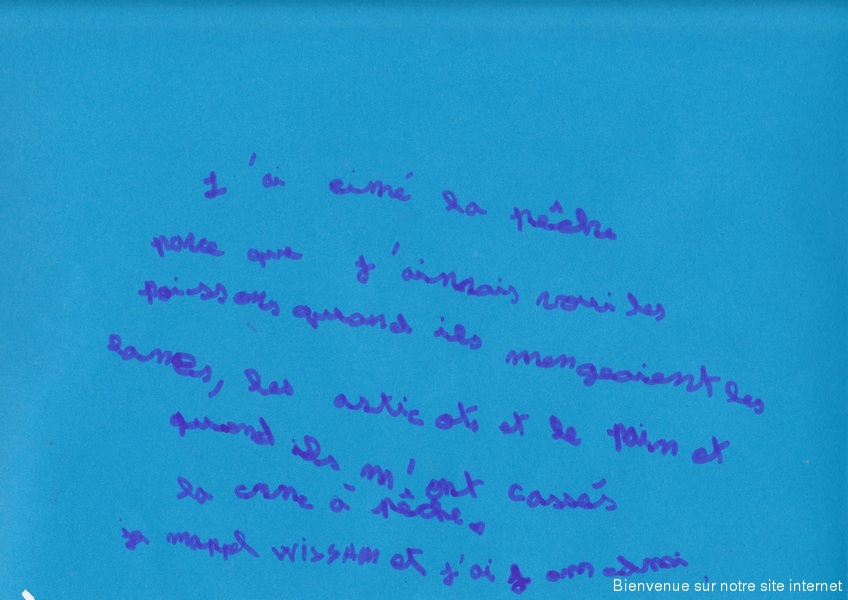 J'ai aimé la pêche
parce que j'aimais voir les
poissons quand ils mengeaient les
, les astic ots et le pain et
quand ils m'ont cassés
la cane à pêche.
je mappel WISSAM et j'ai
Bienvenue sur notre site internet